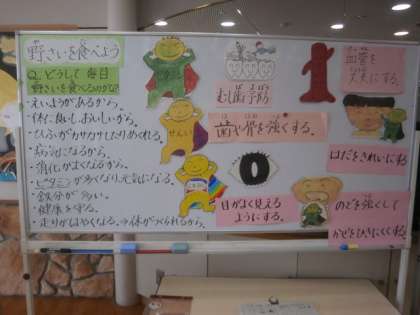 野さいを食べよう
Q.どうして毎日
野さいを食べるのかな?
・えいようがあるから。
・体に良いし、おいしいから。
・病気になるから。
・消化がよくなるから。
・ビタミンが多くなり、元気になる。
・鉄分が多い。
・健康を守る。
・走りがはやくなる。→体がつくられるから。
むし歯予防
歯や骨を強くする。
目がよく見える
ようにする。
血管を
丈夫にする。
はだをきれいにする
のどを強くして
かぜをひきにくくする